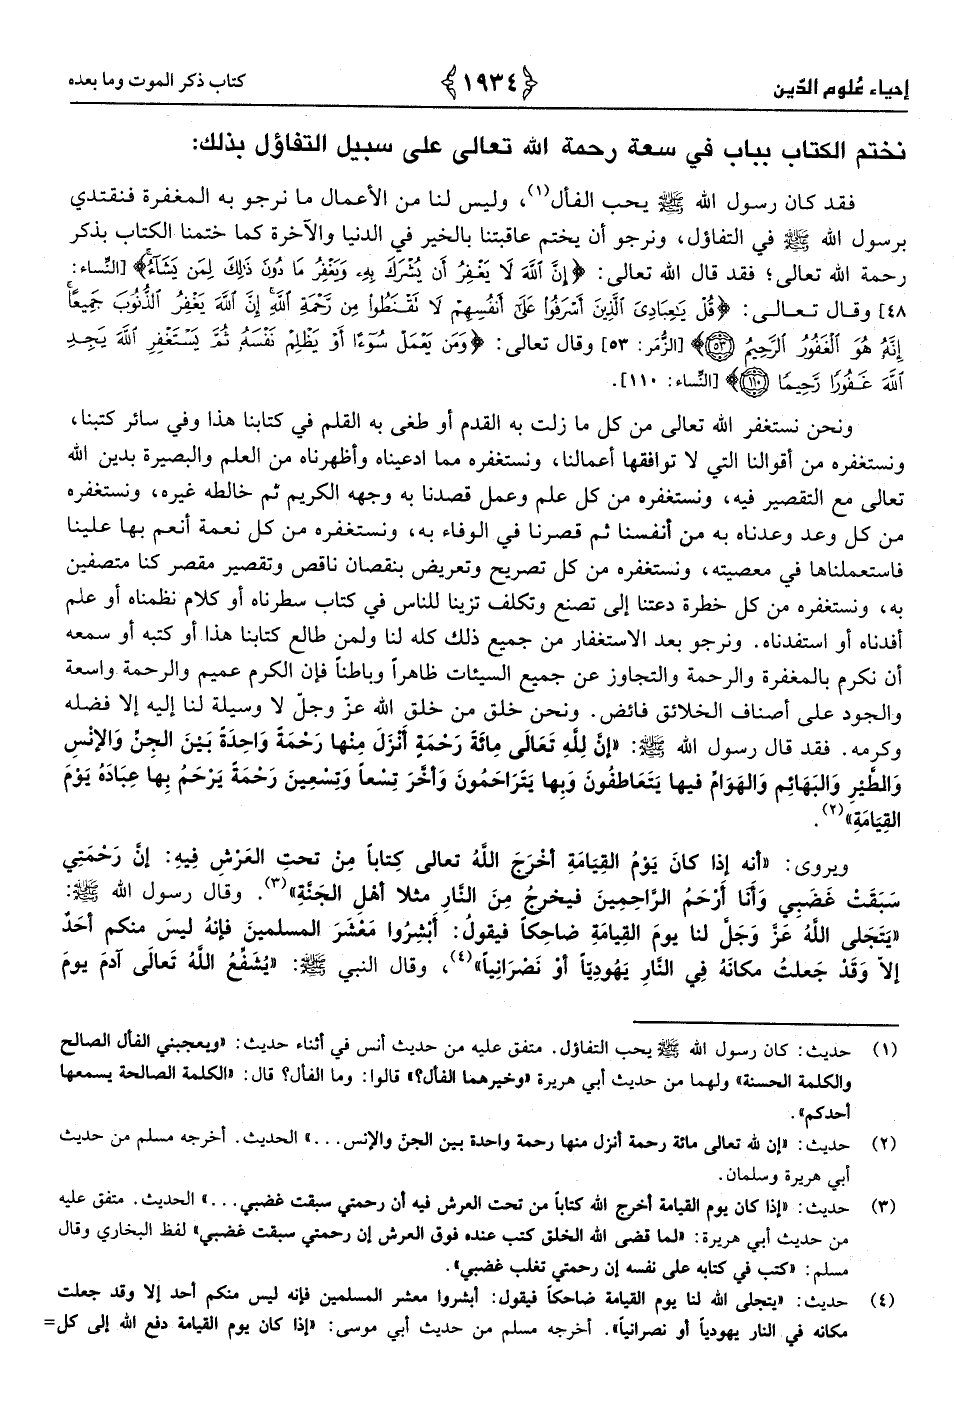 إحياء عُلوم الدّين ﴿١٩٣٤﴾ كتاب ذكر الموت وما بعده
نختم الكتاب بباب في سعة رحمة الله تعالى على سبيل التفاؤل بذلك:
فقد كان رسول الله ﷺ يحب الفأل(١)، وليس لنا من الأعمال ما نرجو به المغفرة فنقتدي
برسول الله ﷺ في التفاؤل، ونرجو أن يختم عاقبتنا بالخير في الدنيا والآخرة كما ختمنا الكتاب بذكر
رحمة الله تعالى؛ فقد قال الله تعالى: ﴿إِنَّ اللَّهَ لَا يَغْفِرُ أَن يُشْرَكَ بِهِ وَيَغْفِرُ مَا دُونَ ذَٰلِكَ لِمَن يَشَآءُ﴾ [النّساء:
٤٨] وقال تعالى: ﴿قُلْ يَٰعِبَادِىَ الَّذِينَ أَسْرَفُوا عَلَىٰٓ أَنفُسِهِمْ لَا تَقْنَطُوا مِن رَّحْمَةِ اللَّهِ إِنَّ اللَّهَ يَغْفِرُ الذُّنُوبَ جَمِيعًا
إِنَّهُ هُوَ الْغَفُورُ الرَّحِيمُ ۝٥٣﴾ [الزُّمَر: ٥٣] وقال تعالى: ﴿وَمَن يَعْمَلْ سُوٓءًا أَوْ يَظْلِمْ نَفْسَهُ ثُمَّ يَسْتَغْفِرِ اللَّهَ يَجِدِ
اللَّهَ غَفُورًا رَّحِيمًا ۝١١٠﴾ [النّساء: ١١٠].
ونحن نستغفر الله تعالى من كل ما زلت به القدم أو طغى به القلم في كتابنا هذا وفي سائر كتبنا،
ونستغفره من أقوالنا التي لا توافقها أعمالنا، ونستغفره مما ادعيناه وأظهرناه من العلم والبصيرة بدين الله
تعالى مع التقصير فيه، ونستغفره من كل علم وعمل قصدنا به وجهه الكريم ثم خالطه غيره، ونستغفره
من كل وعد وعدناه به من أنفسنا ثم قصرنا في الوفاء به، ونستغفره من كل نعمة أنعم بها علينا
فاستعملناها في معصيته، ونستغفره من كل تصريح وتعريض بنقصان ناقص وتقصير مقصر كنا متصفين
به، ونستغفره من كل خطرة دعتنا إلى تصنع وتكلف تزينا للناس في كتاب سطرناه أو كلام نظمناه أو علم
أفدناه أو استفدناه. ونرجو بعد الاستغفار من جميع ذلك كله لنا ولمن طالع كتابنا هذا أو كتبه أو سمعه
أن نكرم بالمغفرة والرحمة والتجاوز عن جميع السيئات ظاهراً وباطناً فإن الكرم عميم والرحمة واسعة
والجود على أصناف الخلائق فائض. ونحن خلق من خلق الله عزّ وجلّ لا وسيلة لنا إليه إلا فضله
وكرمه. فقد قال رسول الله ﷺ: «إنَّ لِلَّهِ تَعَالَى مِائَةَ رَحْمَةٍ أَنْزَلَ مِنْها رَحْمَةً وَاحِدَةً بَيْنَ الجِنِّ وَالإنْسِ
وَالطَّيْرِ وَالبَهَائِمِ وَالهَوَامِّ فيها يَتَعَاطَفُونَ وَبِها يَتَرَاحَمُونَ وَأخَّرَ تِسْعاً وَتِسْعِينَ رَحْمَةً يَرْحَمُ بِها عِبَادَهُ يَوْمَ
القِيَامَةِ»(٢).
ويروى: «أنه إذا كانَ يَوْمُ القِيَامَةِ أخْرَجَ اللَّهُ تعالى كِتَاباً مِنْ تحتِ العَرْشِ فِيهِ: إنَّ رَحْمَتِي
سَبَقَتْ غَضَبِي وَأنَا أَرْحَمُ الرَّاحِمِينَ فيخرجُ مِنَ النَّارِ مثلا أهلِ الجَنَّةِ»(٣). وقال رسول الله ﷺ:
«يَتَجَلى اللَّهُ عَزَّ وَجَلَّ لنا يومَ القِيامَةِ ضاحِكاً فيقولُ: أَبْشِرُوا مَعْشَرَ المسلمينَ فإنهُ ليسَ منكم أحَدٌ
إلاّ وَقَدْ جَعلتُ مكانَهُ فِي النَّارِ يَهُودِيّاً أوْ نَصْرَانِياً»(٤)، وقال النبي ﷺ: «يُشَفِّعُ اللَّهُ تَعَالَى آدمَ يومَ
(١) حديث: كان رسول الله ﷺ يحب التفاؤل. متفق عليه من حديث أنس في أثناء حديث: «ويعجبني الفأل الصالح
والكلمة الحسنة» ولهما من حديث أبي هريرة «وخيرهما الفأل؟» قالوا: وما الفأل؟ قال: «الكلمة الصالحة يسمعها
أحدكم».
(٢) حديث: «إن لله تعالى مائة رحمة أنزل منها رحمة واحدة بين الجنّ والإنس...» الحديث. أخرجه مسلم من حديث
أبي هريرة وسلمان.
(٣) حديث: «إذا كان يوم القيامة أخرج الله كتاباً من تحت العرش فيه أن رحمتي سبقت غضبي...» الحديث. متفق عليه
من حديث أبي هريرة: «لما قضى الله الخلق كتب عنده فوق العرش إن رحمتي سبقت غضبي» لفظ البخاري وقال
مسلم: «كتب في كتابه على نفسه إن رحمتي تغلب غضبي».
(٤) حديث: «يتجلى الله لنا يوم القيامة ضاحكاً فيقول: أبشروا معشر المسلمين فإنه ليس منكم أحد إلا وقد جعلت
مكانه في النار يهودياً أو نصرانياً». أخرجه مسلم من حديث أبي موسى: «إذا كان يوم القيامة دفع الله إلى كل=